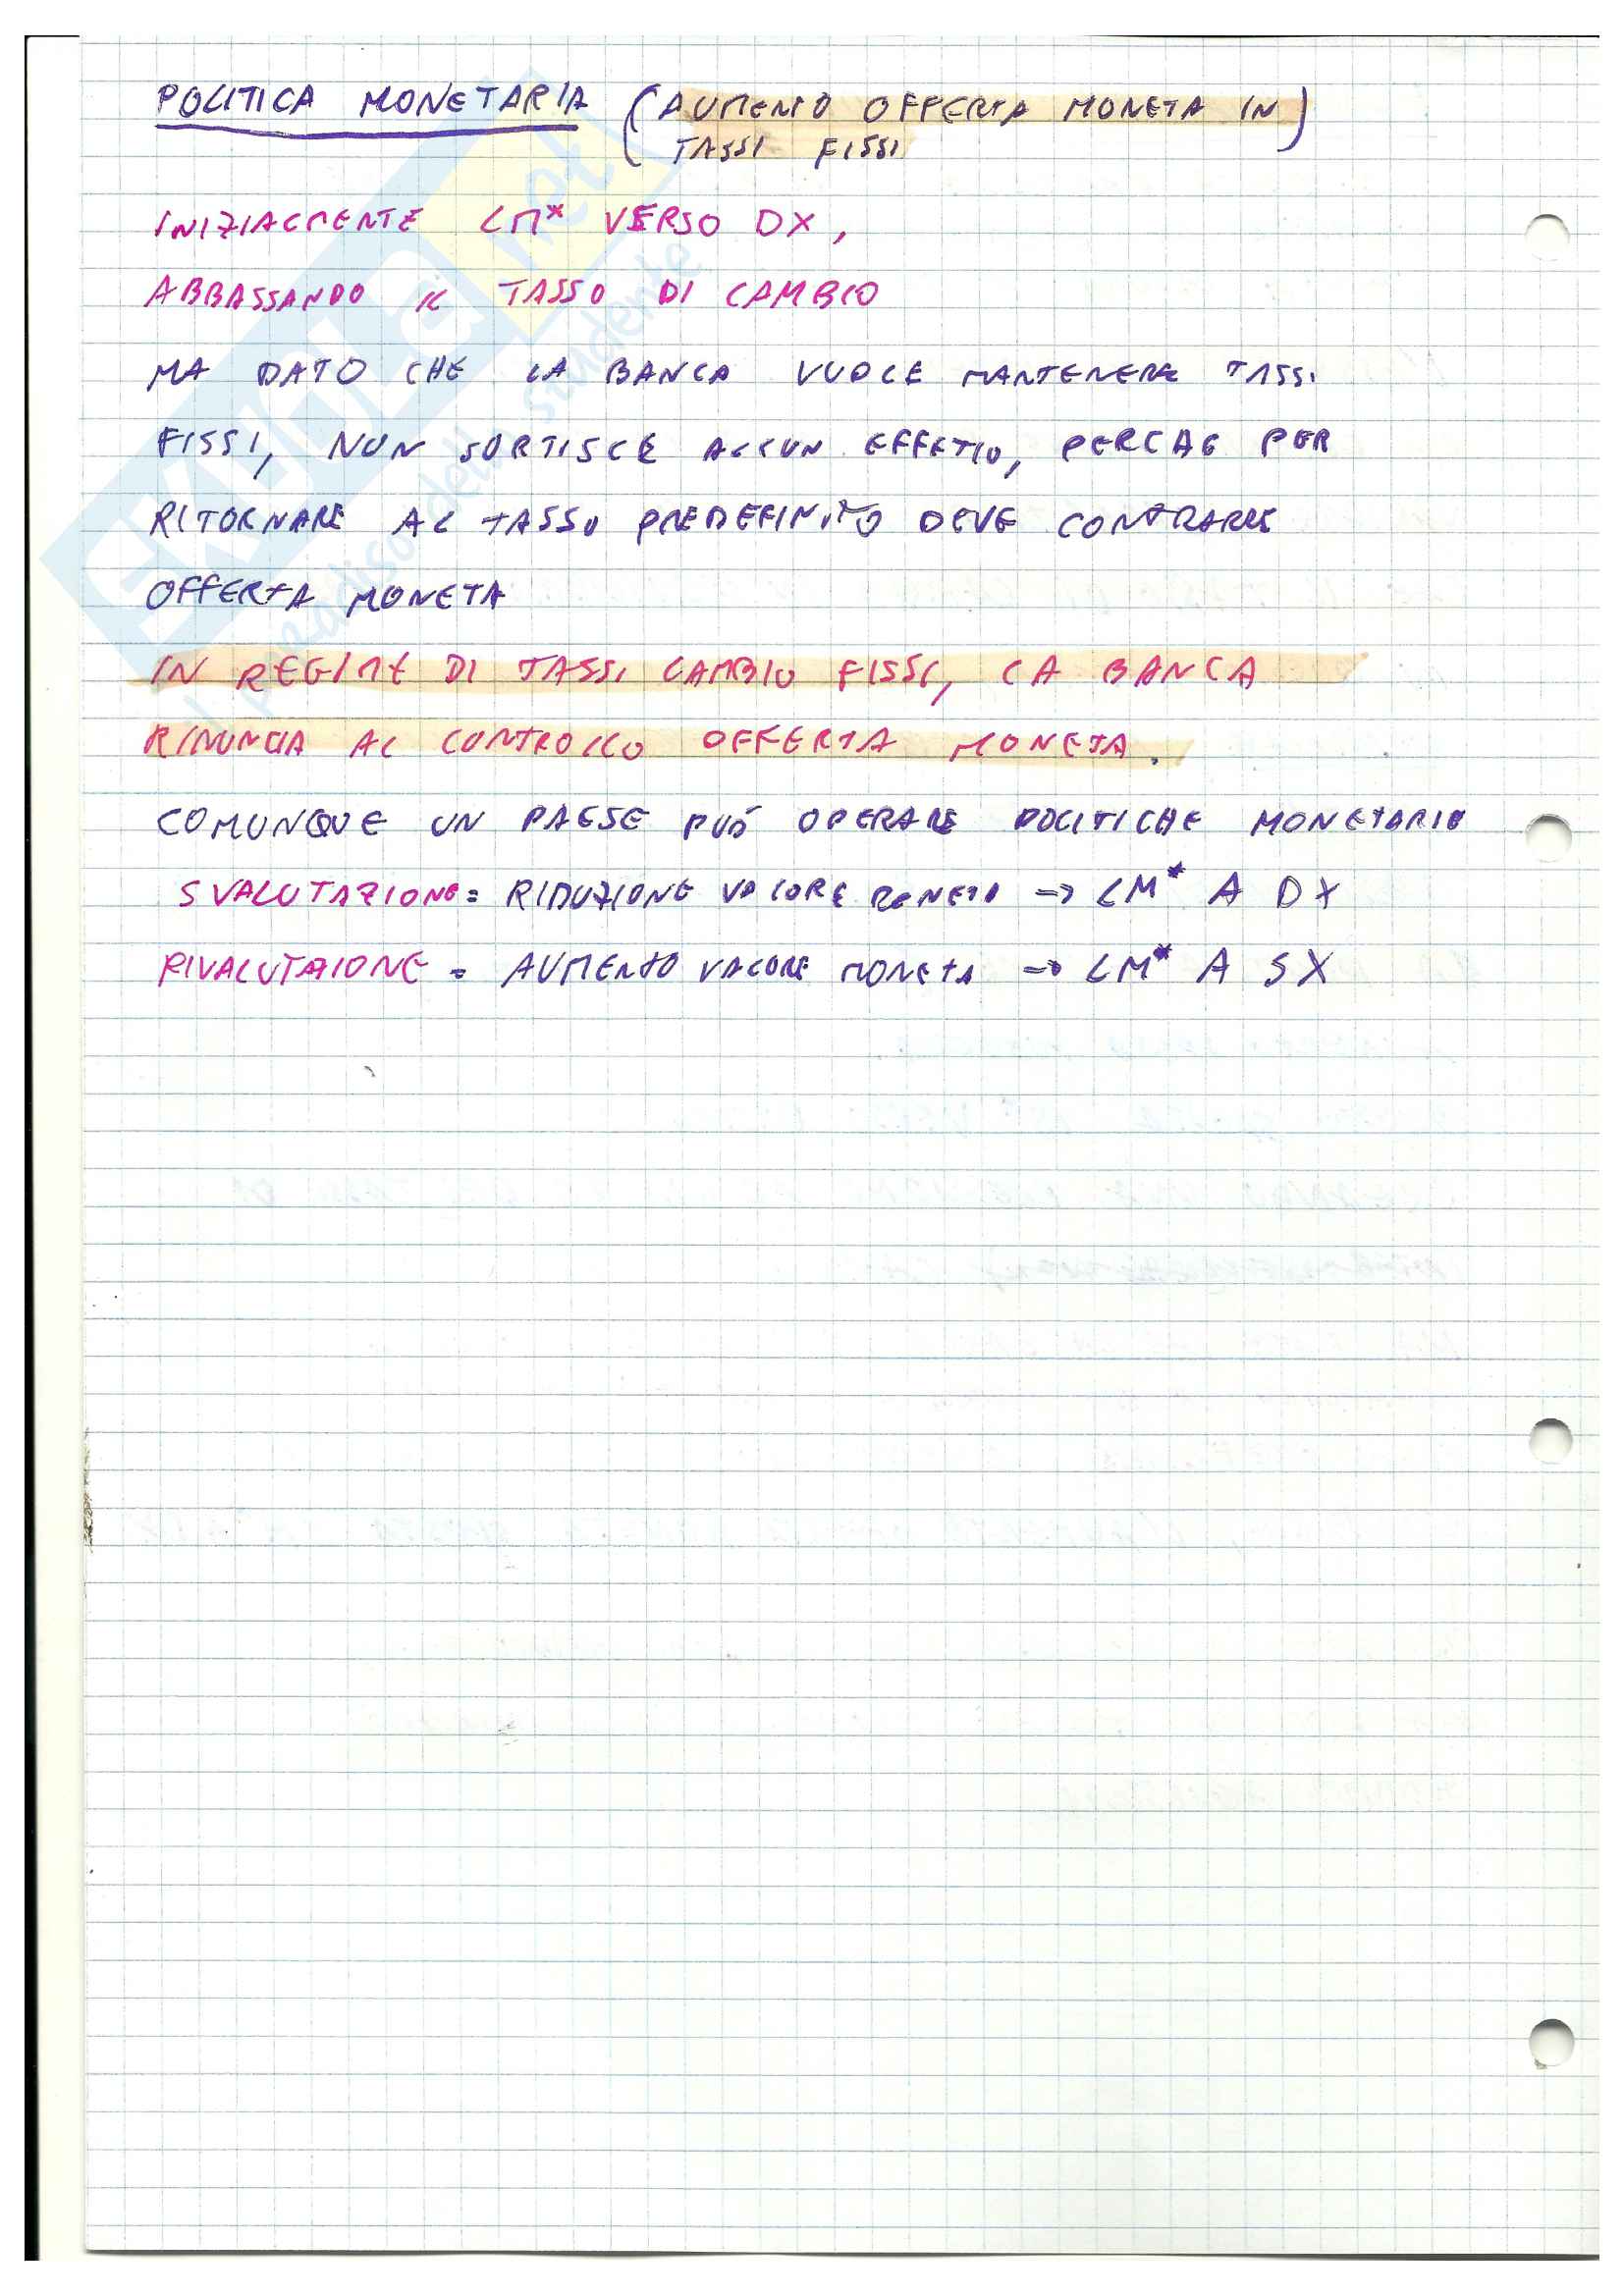 POLITICA MONETARIA (AUMENTO OFFERTA MONETA IN
TASSI FISSI)
INIZIALMENTE LM* VERSO DX,
ABBASSANDO IL TASSO DI CAMBIO
MA DATO CHE LA BANCA VUOLE MANTENERE TASSI
FISSI, NON SORTISCE ALCUN EFFETTO, PERCHE PER
RITORNARE AL TASSO PREDEFINITO DEVE CONTRARRE
OFFERTA MONETA
IN REGIME DI TASSI CAMBIO FISSI, LA BANCA
RINUNCIA AL CONTROLLO OFFERTA MONETA.
COMUNQUE UN PAESE PUÒ OPERARE POLITICHE MONETARIE
SVALUTAZIONE = RIDUZIONE VALORE MONETA → LM* A DX
RIVALUTAZIONE = AUMENTO VALORE MONETA → LM* A SX
SKUOLA.net
il paradiso dello studente